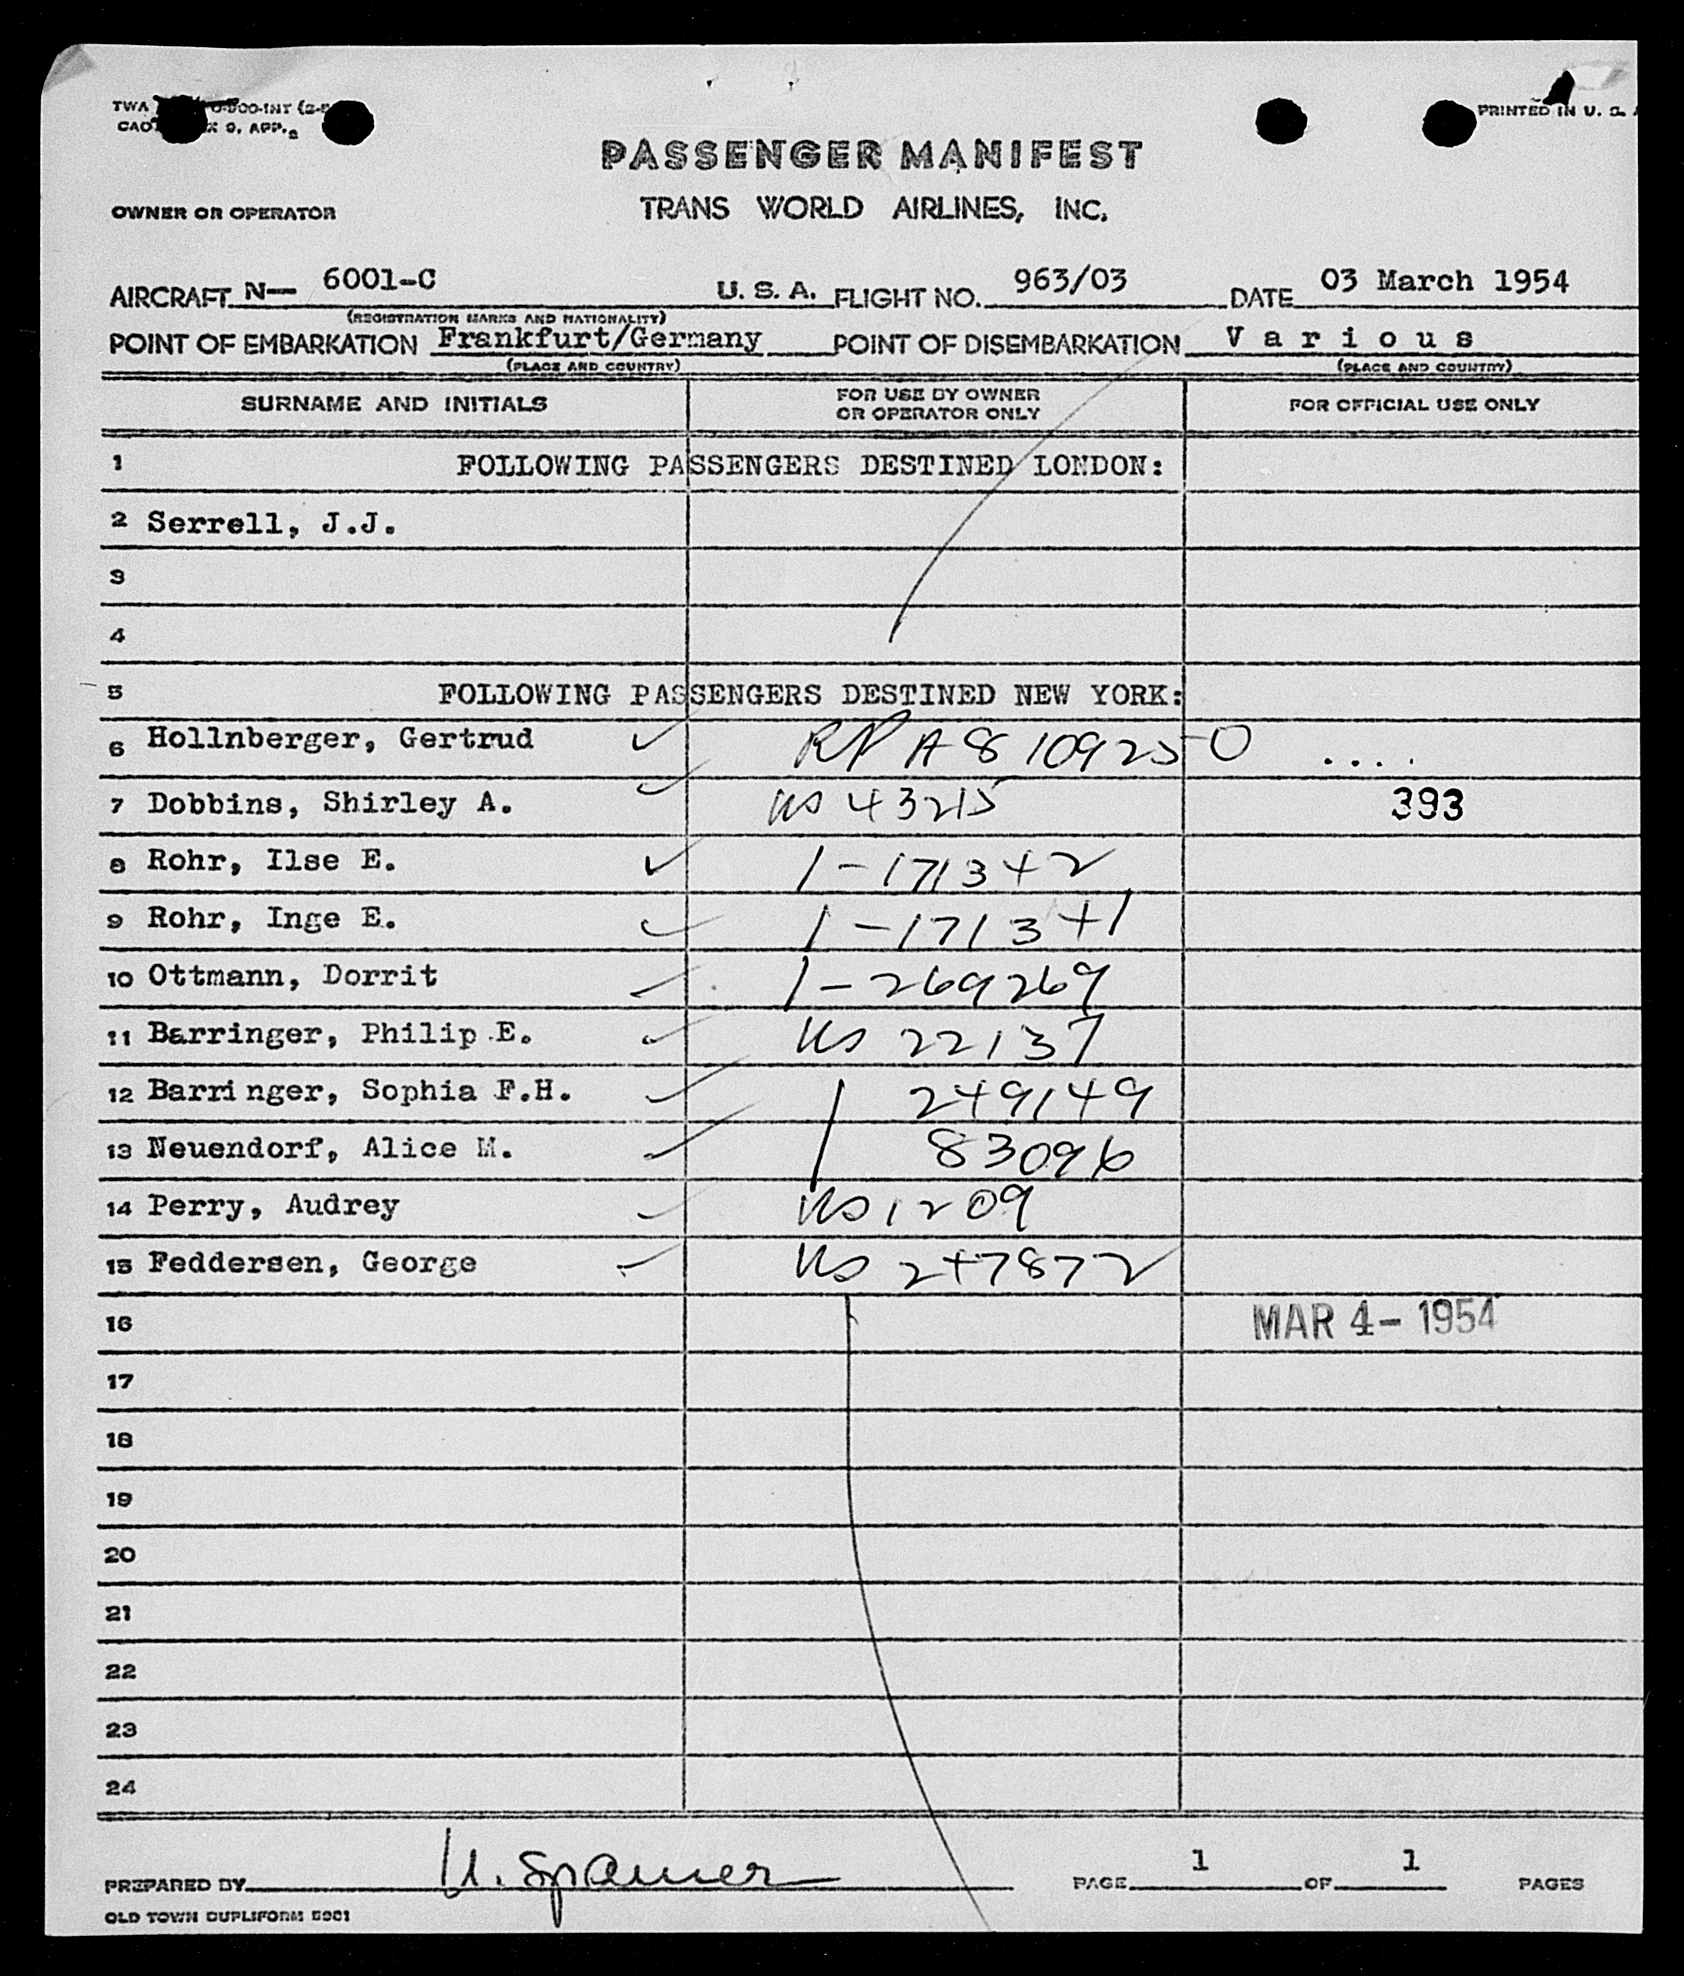 TWA O-500-INT (2-5
CAO X 9, APP. 2
PRINTED IN U. S. A
PASSENGER MANIFEST
OWNER OR OPERATOR TRANS WORLD AIRLINES, INC.
AIRCRAFT N— 6001-C U. S. A. FLIGHT NO. 963/03 DATE 03 March 1954
(REGISTRATION MARKS AND NATIONALITY)
POINT OF EMBARKATION Frankfurt/Germany POINT OF DISEMBARKATION V a r i o u s
(PLACE AND COUNTRY) (PLACE AND COUNTRY)
SURNAME AND INITIALS FOR USE BY OWNER OR OPERATOR ONLY FOR OFFICIAL USE ONLY
1 FOLLOWING PASSENGERS DESTINED LONDON:
2 Serrell, J.J.
3
4
5 FOLLOWING PASSENGERS DESTINED NEW YORK:
6 Hollnberger, Gertrud ✓ RP A8 109250 ....
7 Dobbins, Shirley A. ✓ US 43215 393
8 Rohr, Ilse E. ✓ 1-171342
9 Rohr, Inge E. ✓ 1-171341
10 Ottmann, Dorrit ✓ 1-269269
11 Barringer, Philip E. ✓ US 22137
12 Barringer, Sophia F.H. ✓ 1 249149
13 Neuendorf, Alice M. ✓ 1 83096
14 Perry, Audrey ✓ US 1209
15 Feddersen, George ✓ US 247872
16 MAR 4- 1954
17
18
19
20
21
22
23
24
PREPARED BY U. Spamer PAGE 1 OF 1 PAGES
OLD TOWN DUPLIFORM 5901